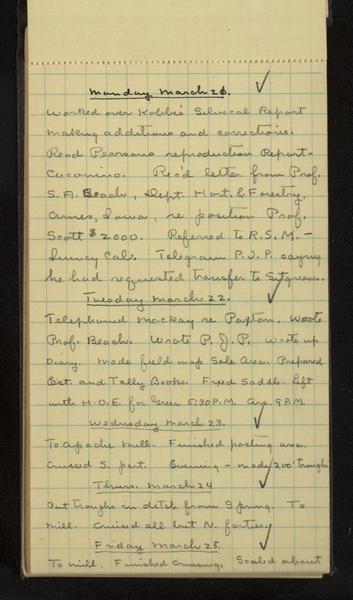 Monday March 2
Worked over Kobbe's Silvical Report
making additions and corrections.
Read Pearsons reproduction Report -
Coconino. Rec'd letter from Prof.
S. A. Beach, Dept. Hort. & Forestry,
Ames, Iowa, re position Prof.
Scott $2000. Referred to R.S.M. -
Quincy Cal. Telegram P.J.P. saying
he had requested transfer to Sitgreaves.
Tuesday March 22.
Telephoned McKay re Paxton. Wrote
Prof. Beach. Wrote P.J.P. Wrote up
Diary. Made field map Sale Area. Prepared
Est. and Tally Books. Fixed Saddle. Left
with H.O.E. for Greer 5:30 P.M. Arr. 9 P.M.
Wednesday March 23.
To Apache Mill. Finished posting area.
Cruised S. part. Evening - made 200' troughs
Thurs. March 24
Put troughs in ditch from Spring. To
mill. Cruised all but N. forties.
Friday March 25.
To mill. Finished cruising. Scaled about